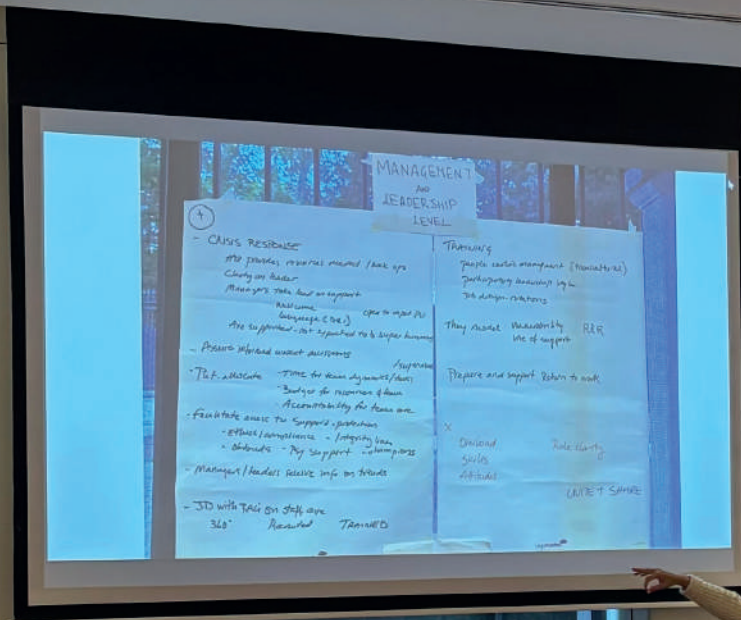 MANAGEMENT
AND
LEADERSHIP
LEVEL
4
- CRISIS RESPONSE
HQ provides resources needed / back ups
Clarity on leader
Managers take lead on support
language
Are supported - not expected to be super humans
- Assure informed consent
allocate - TIME for team dynamics/
- Budget for
- Accountability for team care
- Facilitate access to support + protection
- Ethics/compliance - Integrity line
- Psy support - champions
- Managers/leaders receive info on trends
- JD with on staff care
360° Recruited TRAINED
TRAINING
people centric management
participatory leadership style
Job design rotations
They model vulnerability R&R
use of support
Prepare and support Return to work
X
Demand Role clarity
Skills
Attitudes
UNITE + SHARE